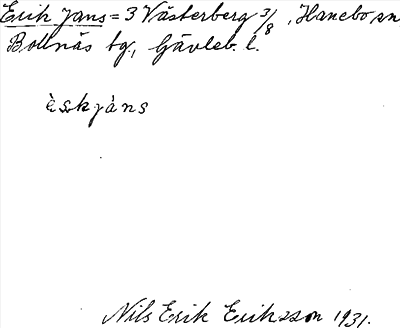 Erik Jans = 3 Västerberg 3/8, Hanebo sn
Bollnäs tg., Gävleb. l.
èskjàns
Nils Erik Eriksson 1931.